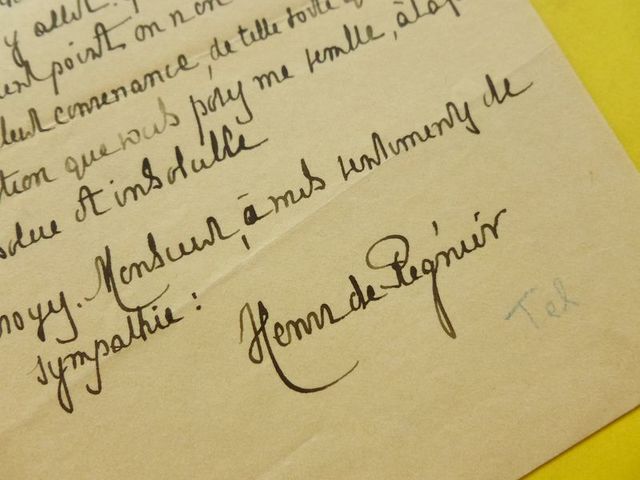 y aller.
point ou non
leur convenance, de telle sorte q
tion que vous posez me semble, à la f
solue et insoluble
royez. Monsieur, à mes sentiments de
sympathie:
Henri de Régnier
Tel